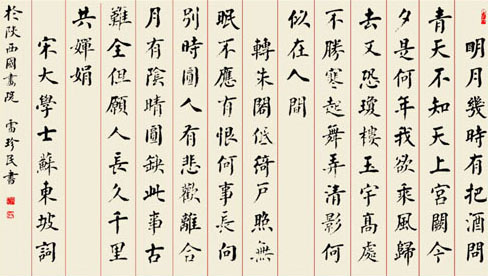 明月幾時有把酒問
青天不知天上宮闕今
夕是何年我欲乘風歸
去又恐瓊樓玉宇高處
不勝寒起舞弄清影何
似在人間
轉朱閣低綺戶照無
眠不應有恨何事長向
別時圓人有悲歡離合
月有陰晴圓缺此事古
難全但願人長久千里
共嬋娟
宋大學士蘇東坡詞
於陝西國畫院 雷珍民書